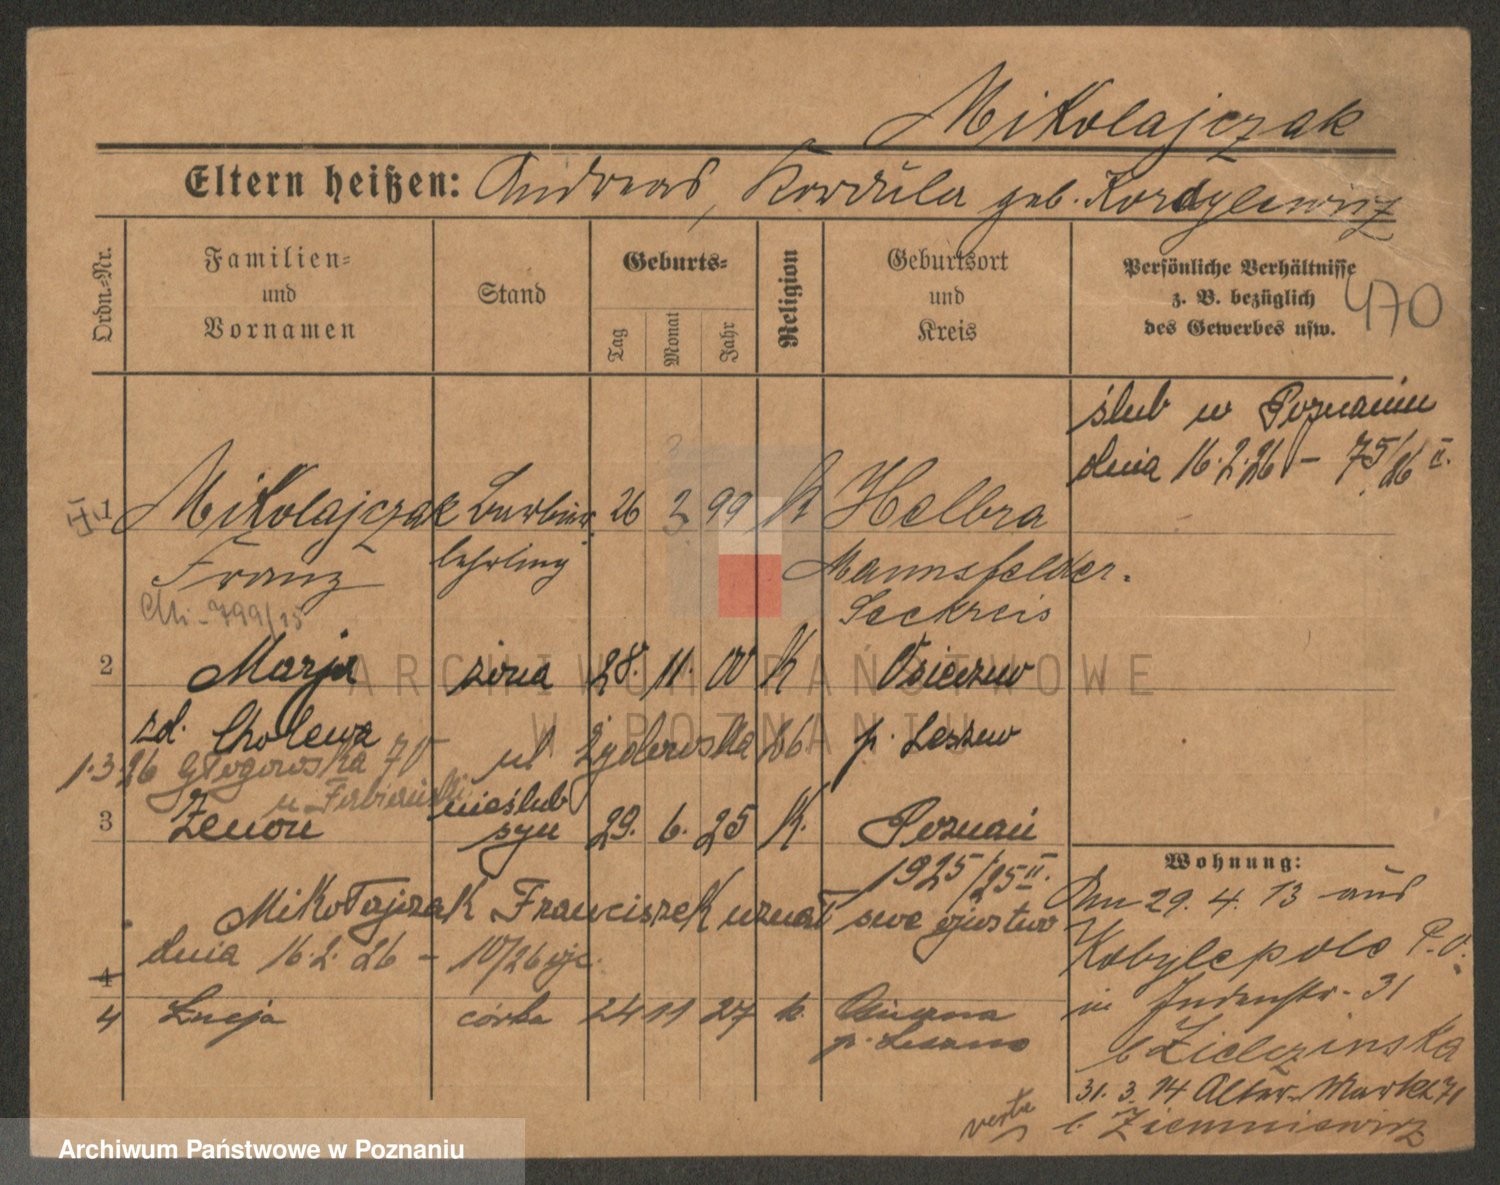 Mikolajczak
Eltern heißen: Andreas, Kordula geb. Kordylewicz
Ordn.-Nr.
Familien- und Vornamen
Stand
Geburts-
Tag
Monat
Jahr
Religion
Geburtsort und Kreis
Persönliche Verhältnisse z. B. bezüglich des Gewerbes usw.
470
ślub w Poznaniu
dnia 16.2.26 - 75/26 I.
1 Mikolajczak Barbier 26 2 99 K Helbra
Franz lehrling Mannsfelder
Seekreis
799/15
2 Marja żona 28. 11. 00 K Osieczno
zd. Cholewa ul. Żydowska 86 p. Leszno
1.3.26 Głogowska 70
u
nieślub
3 Zenon syn 29. 6. 25 K. Poznań
1925/25 II.
Mikołajczak Franciszek uznał swe ojcostwo
dnia 16.2.26 - 10/26 ojc.
4
4 Łucja córka 24 11 27 k.
p. Leszno
Wohnung:
Am 29. 4. 13 aus
Kobylepole P.O.
in Judenstr. 31
b Zielezinska
31. 3. 14 Alter Markt 71
b. Ziemniewicz
verte
ARCHIWUM PAŃSTWOWE
W POZNANIU
Archiwum Państwowe w Poznaniu